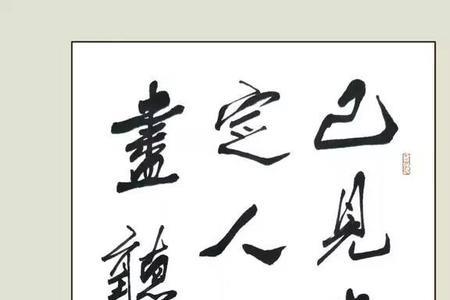 已見
定人
盡聽